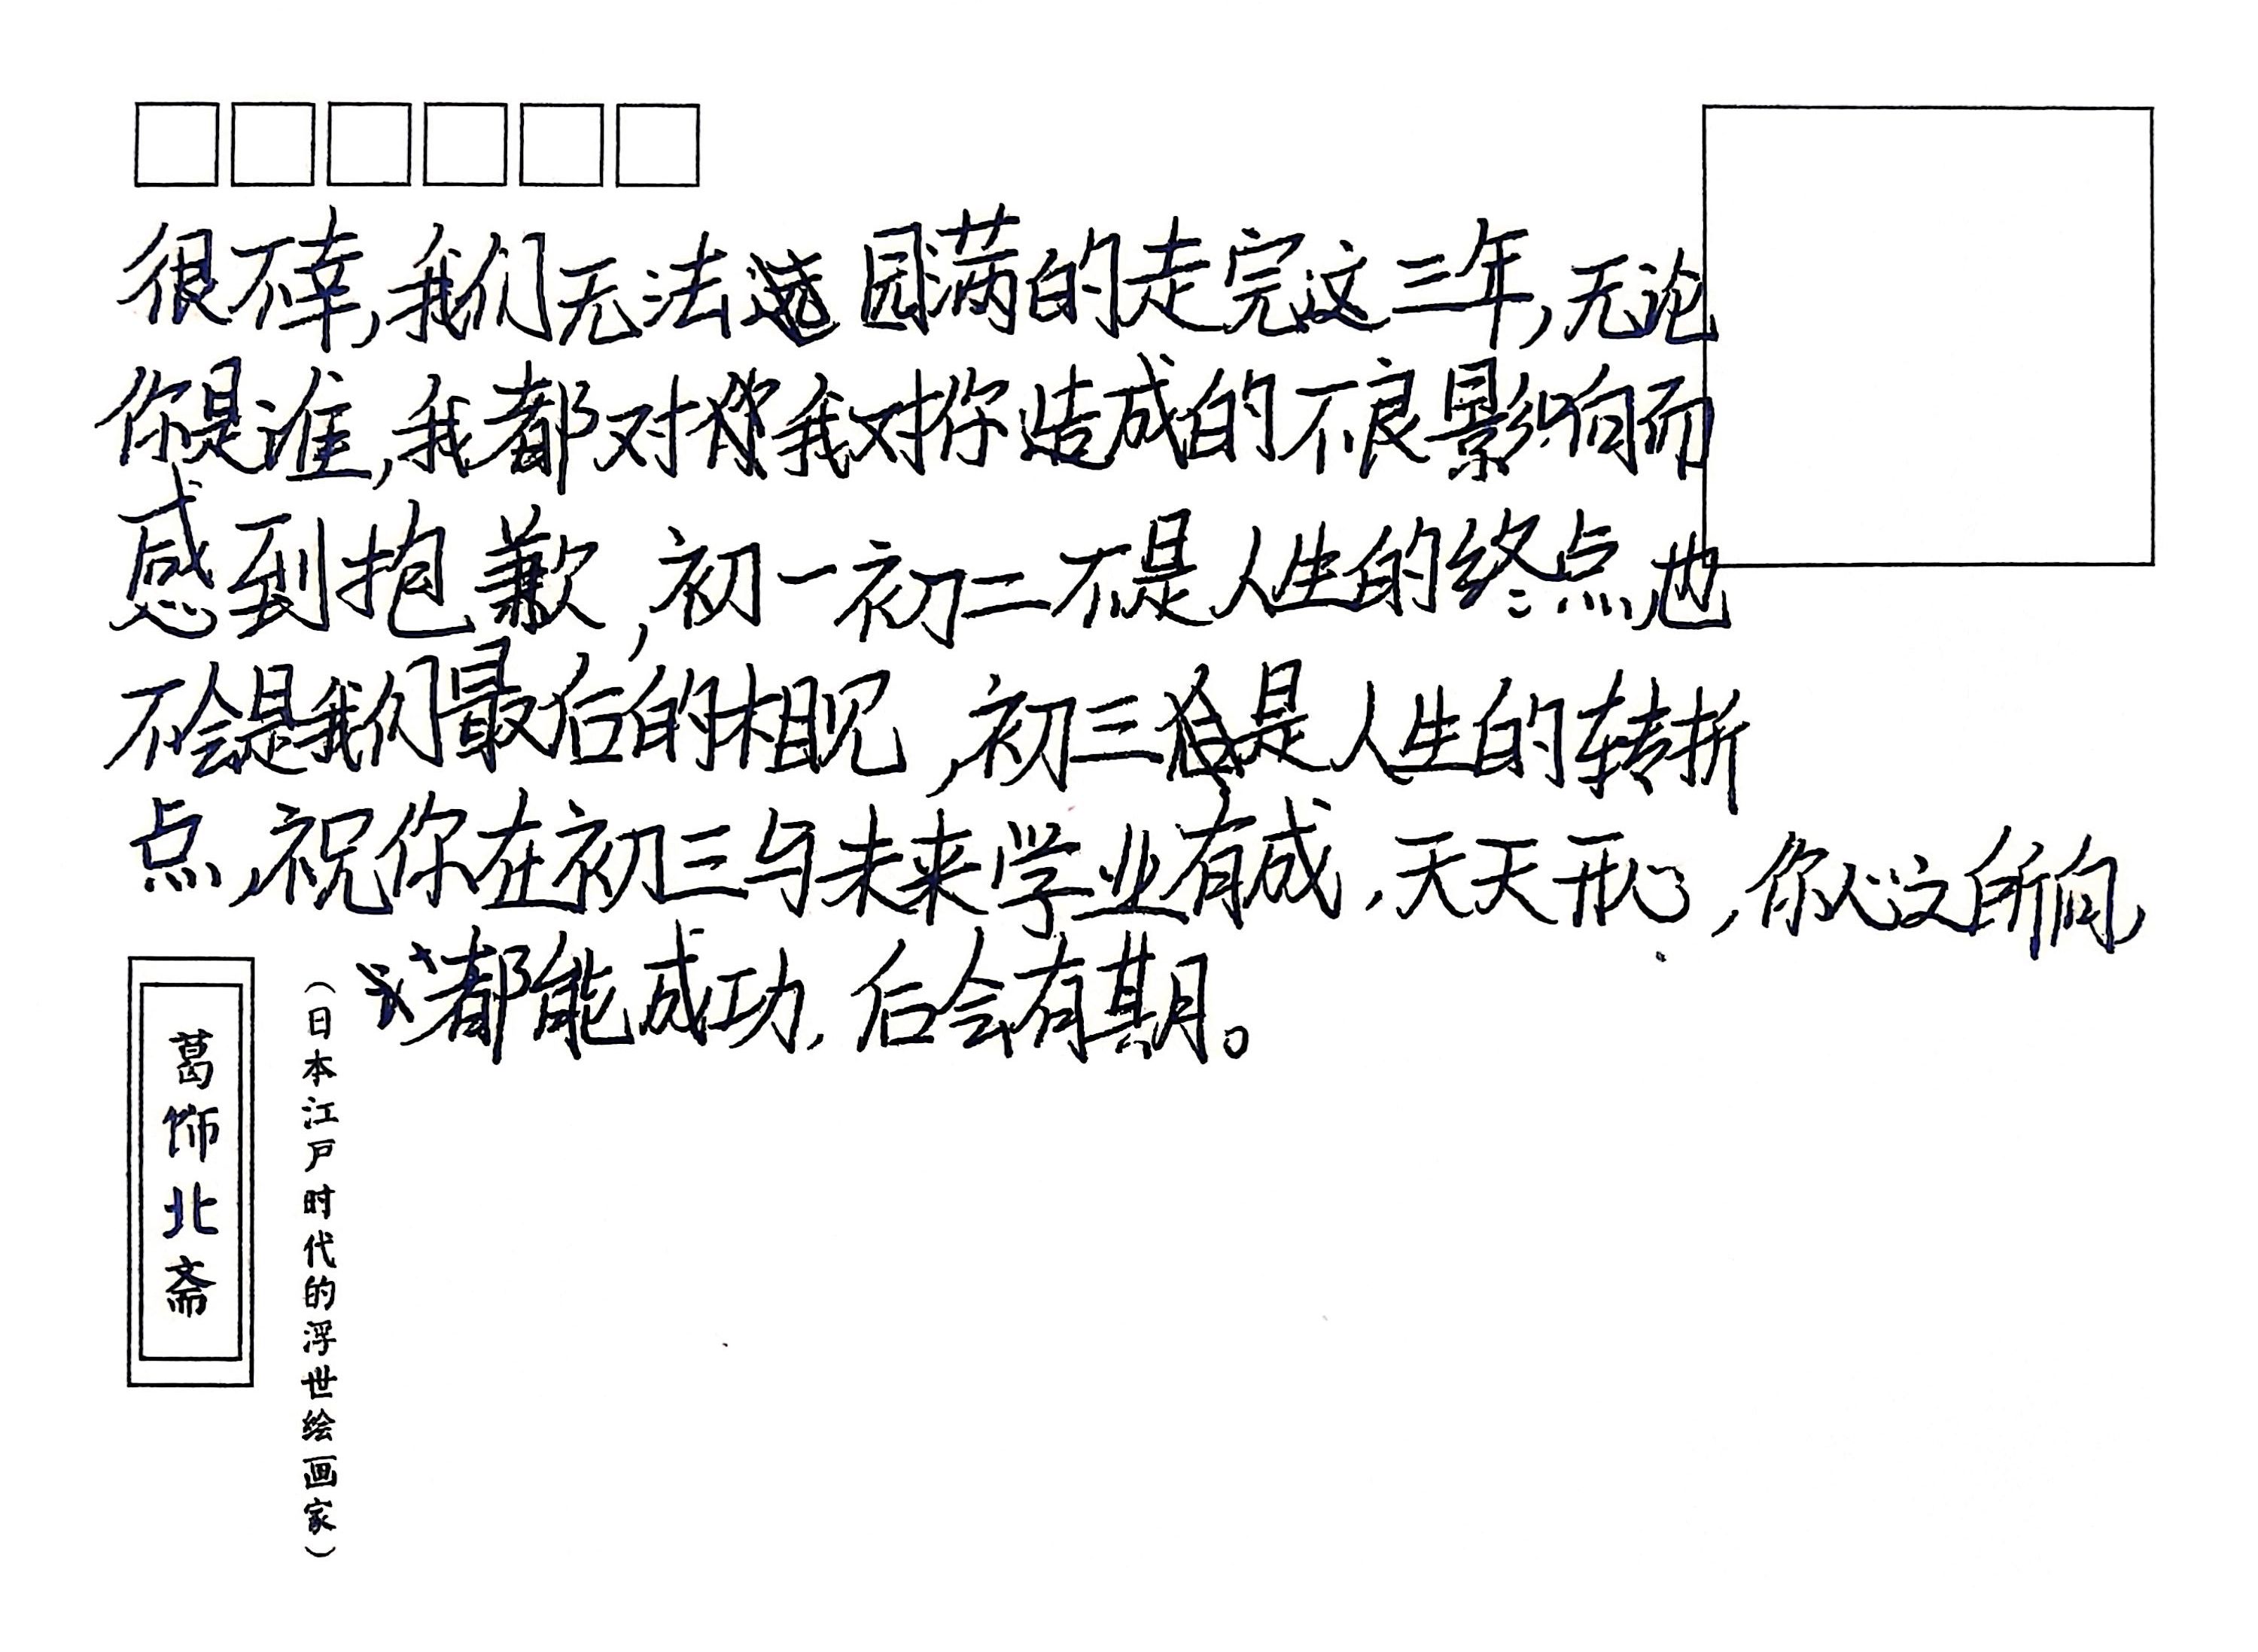 很不幸，我们无法圆满的走完这三年，无论
你是谁，我都对我对你造成的不良影响而
感到抱歉，初一初二不是人生的终点，也
不会是我们最后的相见，初三是人生的转折
点，祝你在初三与未来学业有成，天天开心，你心之所向，
都能成功，后会有期。
葛饰北斋
（日本江户时代的浮世绘画家）